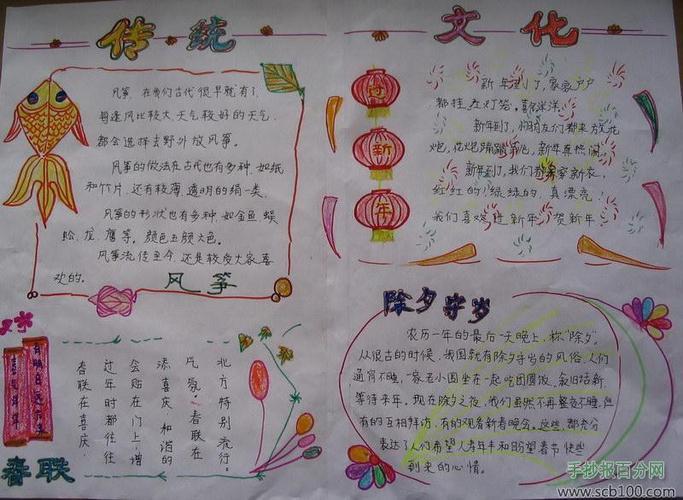 传统
文化
风筝，在我们古代很早就有了，
每逢风比较大，天气较好的天气，
都会选择去野外放风筝。
风筝的做法在古代也有多种，如纸
和竹片，还有较薄，透明的绢一类。
风筝的形状也有多种，如金鱼、蜈
蚣、龙、鹰等。颜色五颜六色。
风筝流传至今，还是较受大家喜
欢的。
风筝
过
新
年
新年到了，家家户户
都挂起灯笼，喜气洋洋。
新年到了，朋友们都来放花
炮，花炮
新年真热闹。
新年到了，我们都
新衣，
红红的，绿绿的，真漂亮。
我们喜欢过新年，贺新年。
春联
北方特别流行。
气氛。春联在
添喜庆和谐的
会贴春联，增
过年时都往上
春联在喜庆
除夕守岁
农历一年的最后一天晚上，称“除夕”。
从很古的时候，我国就有除夕守岁的风俗，人们
通宵不睡，一家老小围坐在一起吃团圆饭，叙旧话新，
等待来年。现在除夕之夜，我们虽然不再整夜不睡，但
有的互相拜访，有的观看新春晚会。这些，都充分
表达了人们希望人寿年丰和盼望春节快些
到来的心情。
手抄报百分网
www.scb100.com